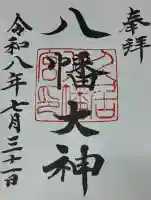 奉拝
八幡大神
令和八年七月三十一日